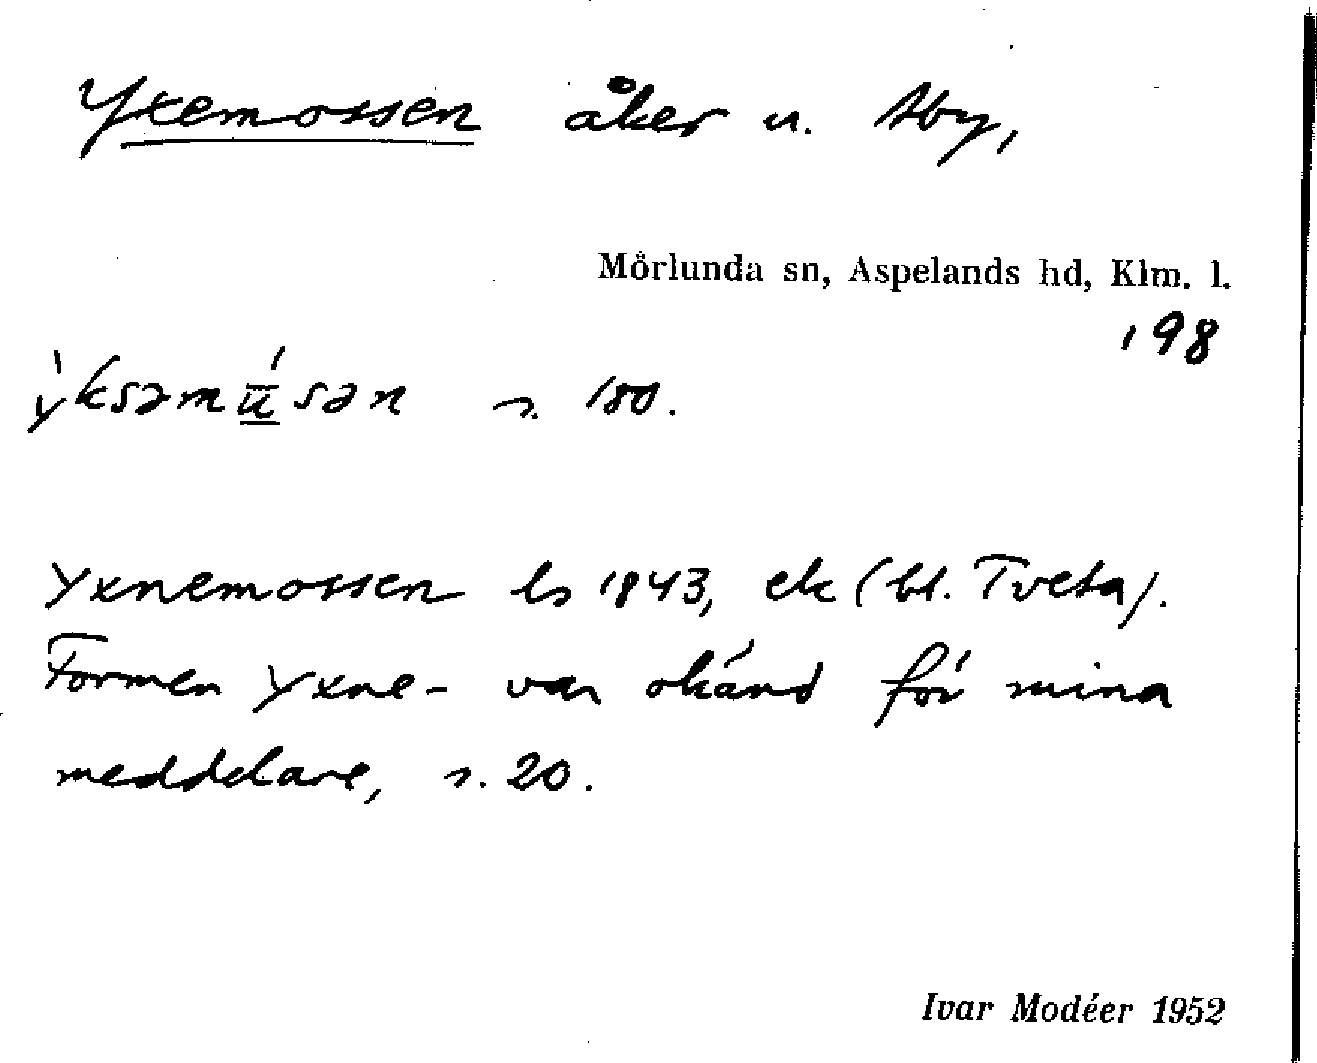 Yxemossen åker u. Åby,
Mörlunda sn, Aspelands hd, Klm. l.
198
s. 180.
Yxnemossen ls 1843, ek (bl. Tveta).
Formen Yxne- var okänd för mina
meddelare, s. 20.
Ivar Modéer 1952